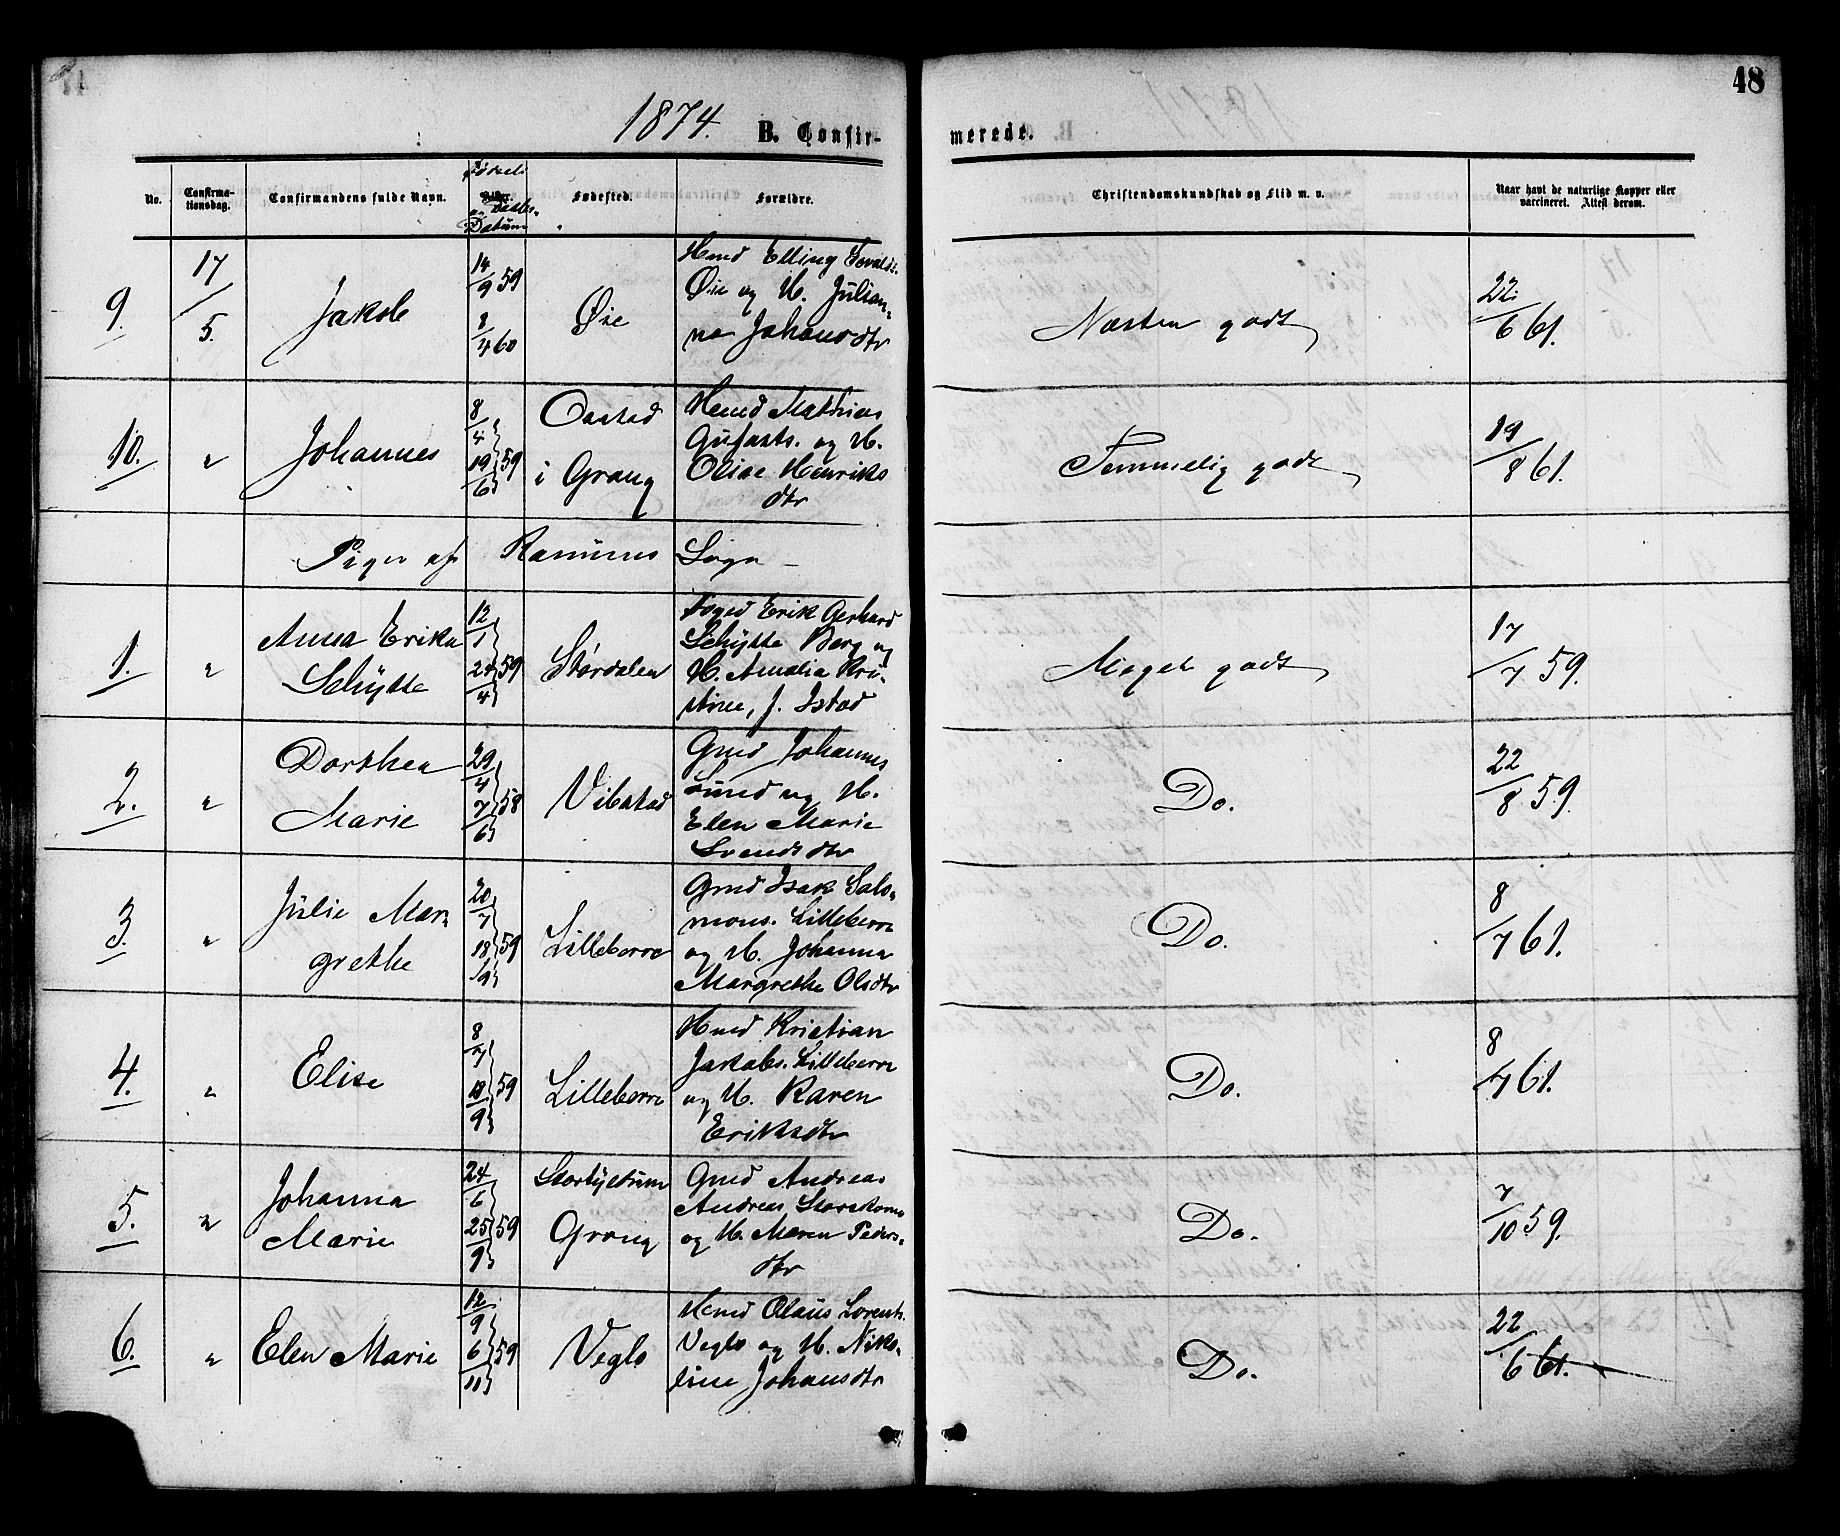 48
1874. B. Confir- merede.
No. Confirma- tionsdag. Confirmandens fulde Navn. Fødsels og Daabs- Datum Fødested. Forældre. Christendomskundskab og Flid m. v. Naar havt de naturlige Kopper eller vaccineret. Attest derom.
9. 17/5. Jakob 14/9 59 8/4 60 Øie
Hmd Elling
Øie og H. Julian-
na Johansdtr
Næsten godt 22/6 61.
10. " Johannes 8/4 19/6 59
i Grong
Hmd Mathias
og H.
Oline Henriks
dtr
Temmelig godt 19/8 61.
Piger af Ranums Sogn
1. " Anna Erika
Schýtte
12/1 24/4 59 Størdalen
Foged Erik Gerhard
Schýtte Berg og
H. Amalia Kri-
stine, f. Istad
Meget godt 17/7 59.
2. " Dorthea
Marie
29/4 7/6 58 Vibstad
Gmd Johannes
Lund og H.
Elen Marie
Svendsdtr
Do. 22/8 59.
3. " Júlie Mar
grethe
20/7 18/9 59 Lilleberre
Gmd Isak Salo-
mons. Lilleberre
og H. Johanna
Margrethe Olsdtr
Do. 8/7 61.
4. " Elise 8/7 18/9 59 Lilleberre
Hmd Kristian
Jakobs. Lilleberre
og H. Karen
Eriksdtr
Do. 8/7 61.
5. " Johanna
Marie
24/6 25/9 59
Grong
Gmd Andreas
Andreas
og H. Maren Peders-
dtr
Do. 7/10 59.
6. " Elen Marie 12/9 6/11 59 Veglo
Hmd Olaus Lorents.
Veglo og H. Niko-
line Johansdtr
Do. 22/6 61.